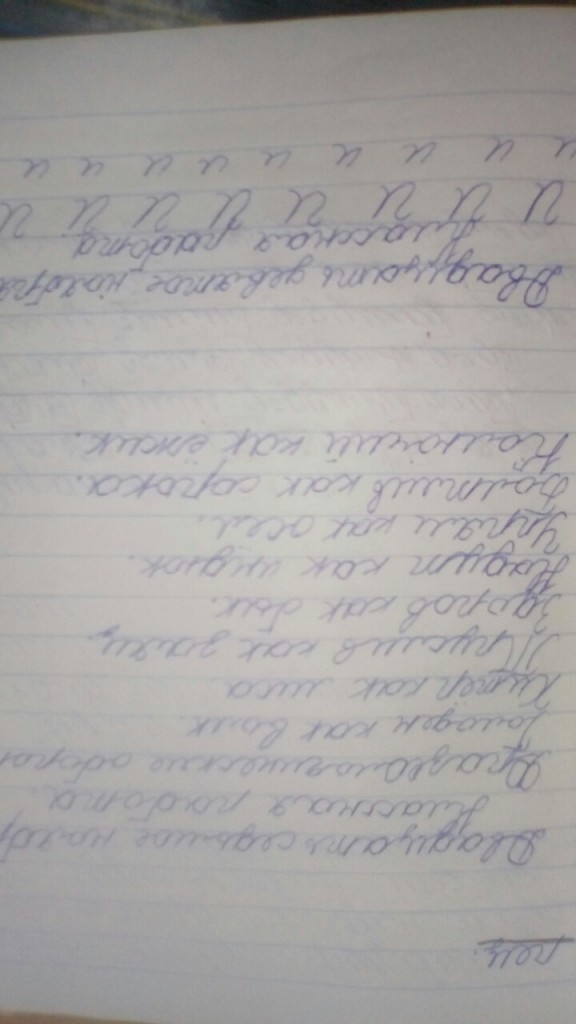 пец.
Двадцать седьмое нояб
Классная работа.
Фразеологические оборо
Голоден как волк
Хитер как лиса.
Труслив как заяц.
Здоров как бык.
Надут как индюк.
Упрям как осел.
Болтлив как сорока.
Колючий как ежик.
Двадцать девятое ноябр
Классная работа
И И И И И И И И
и и и и и и и и и